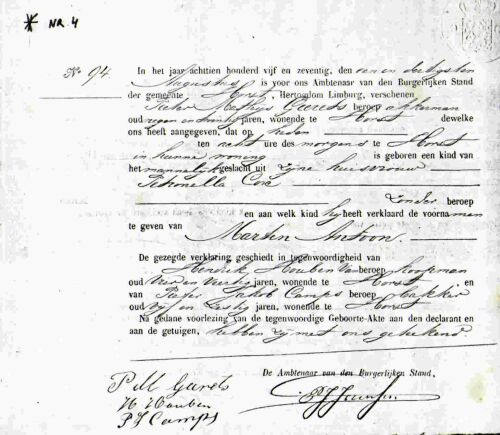 * NR. 4
No 94.
In het jaar achttien honderd vijf en zeventig, den een en dertigsten
Augustus is voor ons Ambtenaar van den Burgerlijken Stand
der gemeente Horst, Hertogdom Limburg, verschenen
Pieter Mathijs Geerets beroep akkerman
oud negen en twintig jaren, wonende te Horst dewelke
ons heeft aangegeven, dat op heden
ten acht ure des morgens te Horst
in hunne woning is geboren een kind van
het mannelijk geslacht uit zijne huisvrouw
Petronella Cox
zonder beroep
en aan welk kind hij heeft verklaard de voornamen
te geven van Marten Antoon.
De gezegde verklaring geschiedt in tegenwoordigheid van
Hendrik Houben van beroep koopman
oud vier en veertig jaren, wonende te Horst en
van Peter Jakob Camps beroep bakker
oud vijf en zestig jaren, wonende te Horst
Na gedane voorlezing van de tegenwoordige Geboorte-Akte aan den declarant en
aan de getuigen, hebben zij met ons geteekend.
De Ambtenaar van den Burgerlijken Stand,
P M Gerets
H Houben
P J Camps